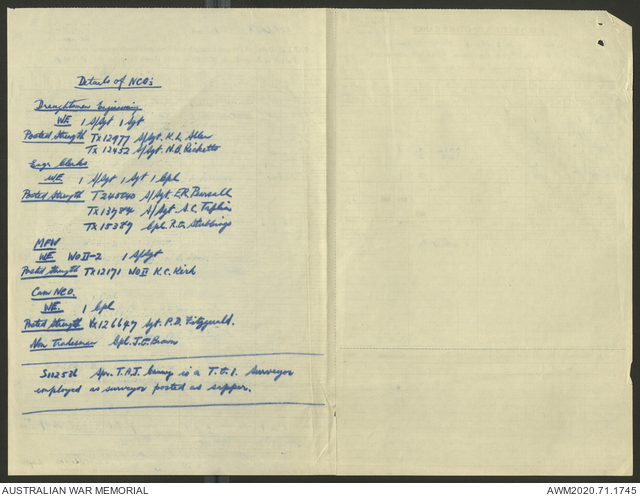 Details of NCO's
Draughtsman Engineering
WE 1 S/Sgt 1 Sgt
Posted Strength Tx12977 S/Sgt. K.L. Allen
Tx 12452 S/Sgt. N.B. Ricketts
Engr Clerks
WE 1 S/Sgt 1 Sgt 1 Cpl
Posted Strength T245040 S/Sgt. E.R. Pursall
Tx13984 A/Sgt. A.C.
Tx15389 Cpl. R.G. Stubbings
MFW
WE WO II-2 1 S/Sgt
Posted Strength Tx12171 WO II K.C. Kirk
Cam NCO.
WE. 1 Cpl
Posted Strength Vx126647 Sgt. P.D. Fitzgerald.
Non Tradesman Cpl. J.E. Brown
S112536 Spr. T.A.J. is a T.G.1. Surveyor
employed as surveyor posted as sapper.
AUSTRALIAN WAR MEMORIAL
AWM2020.71.1745